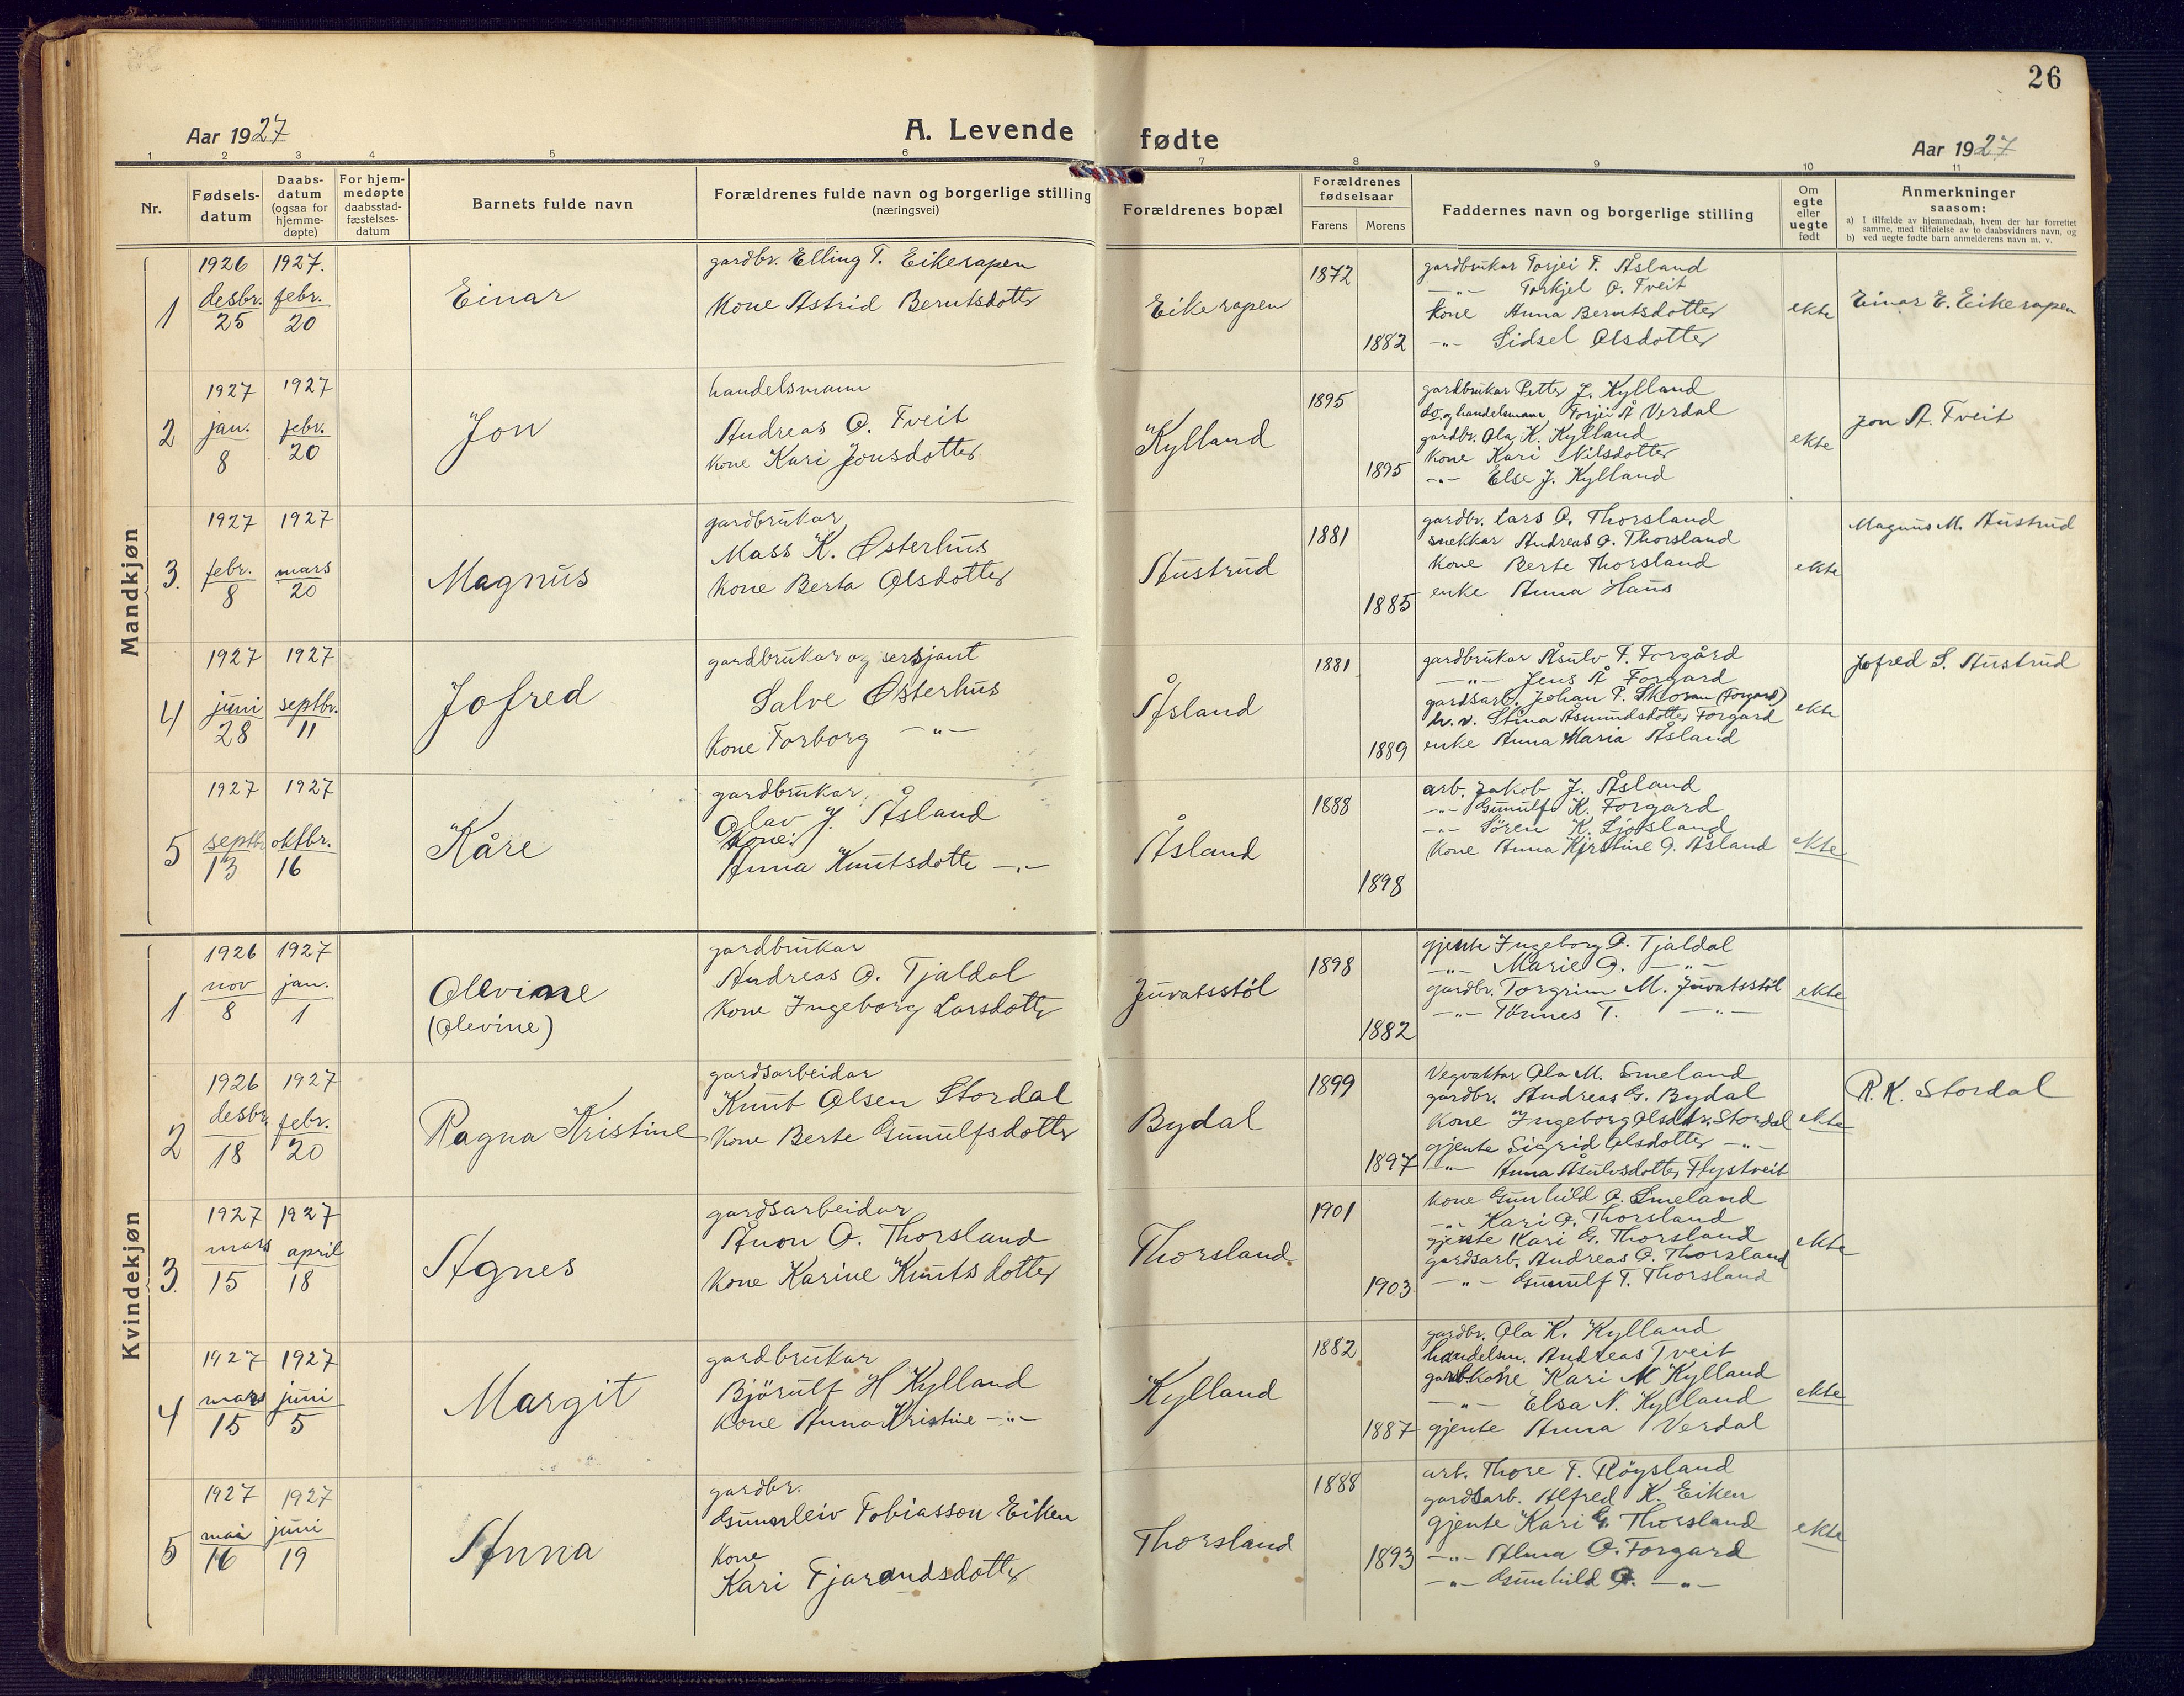 26
Aar 1927
A. Levende fødte
Aar 1927
1 2 3 4 5 6 7 8 9 10 11
Nr.
Fødsels-
datum
Daabs-
datum
(ogsaa for
hjemme-
døpte)
For hjem-
medøpte
daabsstad-
fæstelses-
datum
Barnets fulde navn
Forældrenes fulde navn og borgerlige stilling
(næringsvei)
Forældrenes bopæl
Forældrenes
fødselsaar
Farens Morens
Faddernes navn og borgerlige stilling
Om
egte
eller
uegte
født
Anmerkninger
saasom:
a) I tilfælde av hjemmedaab, hvem der har forrettet
samme, med tilføielse av to daabsvidners navn, og
b) ved uegte fødte barn anmelderens navn m. v.
Mandkjøn
1
1926
desbr.
25
1927.
febr.
20
Einar
gardbr. Elling T. Eikerapen
Kone Astrid Berntsdotter
Eikerapen
1872
1882
gardbrukar Torjei T. Åsland
-"- Torkjel O. Tveit
kone Anna Berntsdotter
-"- Sidsel Olsdotter
ekte
Einar E. Eikerapen
2
1927
jan.
8
1927
febr.
20
Jon
handelsmann
Andreas O. Tveit
kone Kari Jonsdotter
Kylland
1895
1895
gardbrukar Petter J. Kylland
do og handelsmann Torjei Å Verdal
gardbr. Ola K. Kylland
kone Kari Nilsdotter
-"- Else J. Kylland
ekte
Jon A. Tveit
3.
1927
febr.
8
1927
mars
20
Magnus
gardbrukar
Mass K. Østerhus
Kone Berta Olsdotter
Austrud
1881
1885
gardbr. Lars O. Thorsland
snekkar Andreas O. Thorsland
kone Berte Thorsland
enke Anna Haus
ekte
Magnus M. Austrud
4
1927
juni
28
1927
septbr.
11
Jofred
gardbrukar og sersjant
Salve Østerhus
Kone Torborg -"-
Åsland
1881
1889
gardbrukar Åsulv T. Forgård
-"- Jens Å Forgard
gardsarb. Johan P. Skoran (Forgard)
h.v. Stina Åsmundsdotter Forgard
enke Anna Maria Åsland
ekte
Jofred S. Austrud
5
1927
septbr
13
1927
oktbr.
16
Kåre
gardbrukar
Olav J. Åsland
Kone:
Anna Knutsdotte -"-
Åsland
1888
1898
arb. Jakob J. Åsland
-"- Gunulf K. Forgard
-"- Sören K. Ljosland
Kone Anna Kjrstine O. Åsland
ekte
Kvindekjøn
1
1926
nov
8
1927
jan.
1
Olevine
(Olevine)
gardbrukar
Andreas O. Tjaldal
Kone Ingeborg Larsdotter
Juvatsstöl
1898
1882
gjente Ingeborg O. Tjaldal
-"- Marie O. -"-
gardbr. Torgrim M. Juvatsstöl
-"- Tönnes T. -"-
ekte
2
1926
desbr.
18
1927
febr.
20
Ragna Kristine
gardsarbeidar
Knut Olsen Stordal
Kone Berte Gunulfsdotter
Bydal
1899
1897
Vegvaktar Ola M. Smeland
gardbr. Andreas G. Bydal
Kone Ingeborg Olsdtr. Stordal
gjente Sigrid Olsdotter -"-
-"- Anna Åsulvsdotter Flystveit
ekte
R. K. Stordal
3.
1927
mars
15
1927
april
18
Agnes
gardsarbeidar
Ånon O. Thorsland
Kone Karine Knutsdotter
Thorsland
1901
1903
kone Gunhild A. Smeland
-"- Kari O. Thorsland
gjente Kari G. Thorsland
gardsarb. Andreas O. Thorsland
-"- Gunulf T. Thorsland
ekte
4
1927
mars
15
1927
juni
5
Margit
gardbrukar
Björulf H Kylland
Kone Anna Kristine -"-
Kylland
1882
1887
gardbr. Ola K. Kylland
handelsm. Andreas Tveit
gardbkone Kari M Kylland
-"- Elsa N. Kylland
gjente Anna Verdal
ekte
5
1927
mai
16
1927
juni
19
Anna
gardbr.
Gunnleiv Tobiasson Eiken
Kone
Kari Tjarandsdotter
Thorsland
1888
1893
arb. Thore T. Röysland
gardsarb. Alfred K. Eiken
gjente Kari G. Thorsland
-"- Alma O. Forgard
-"- Gunhild O. -"-
ekte